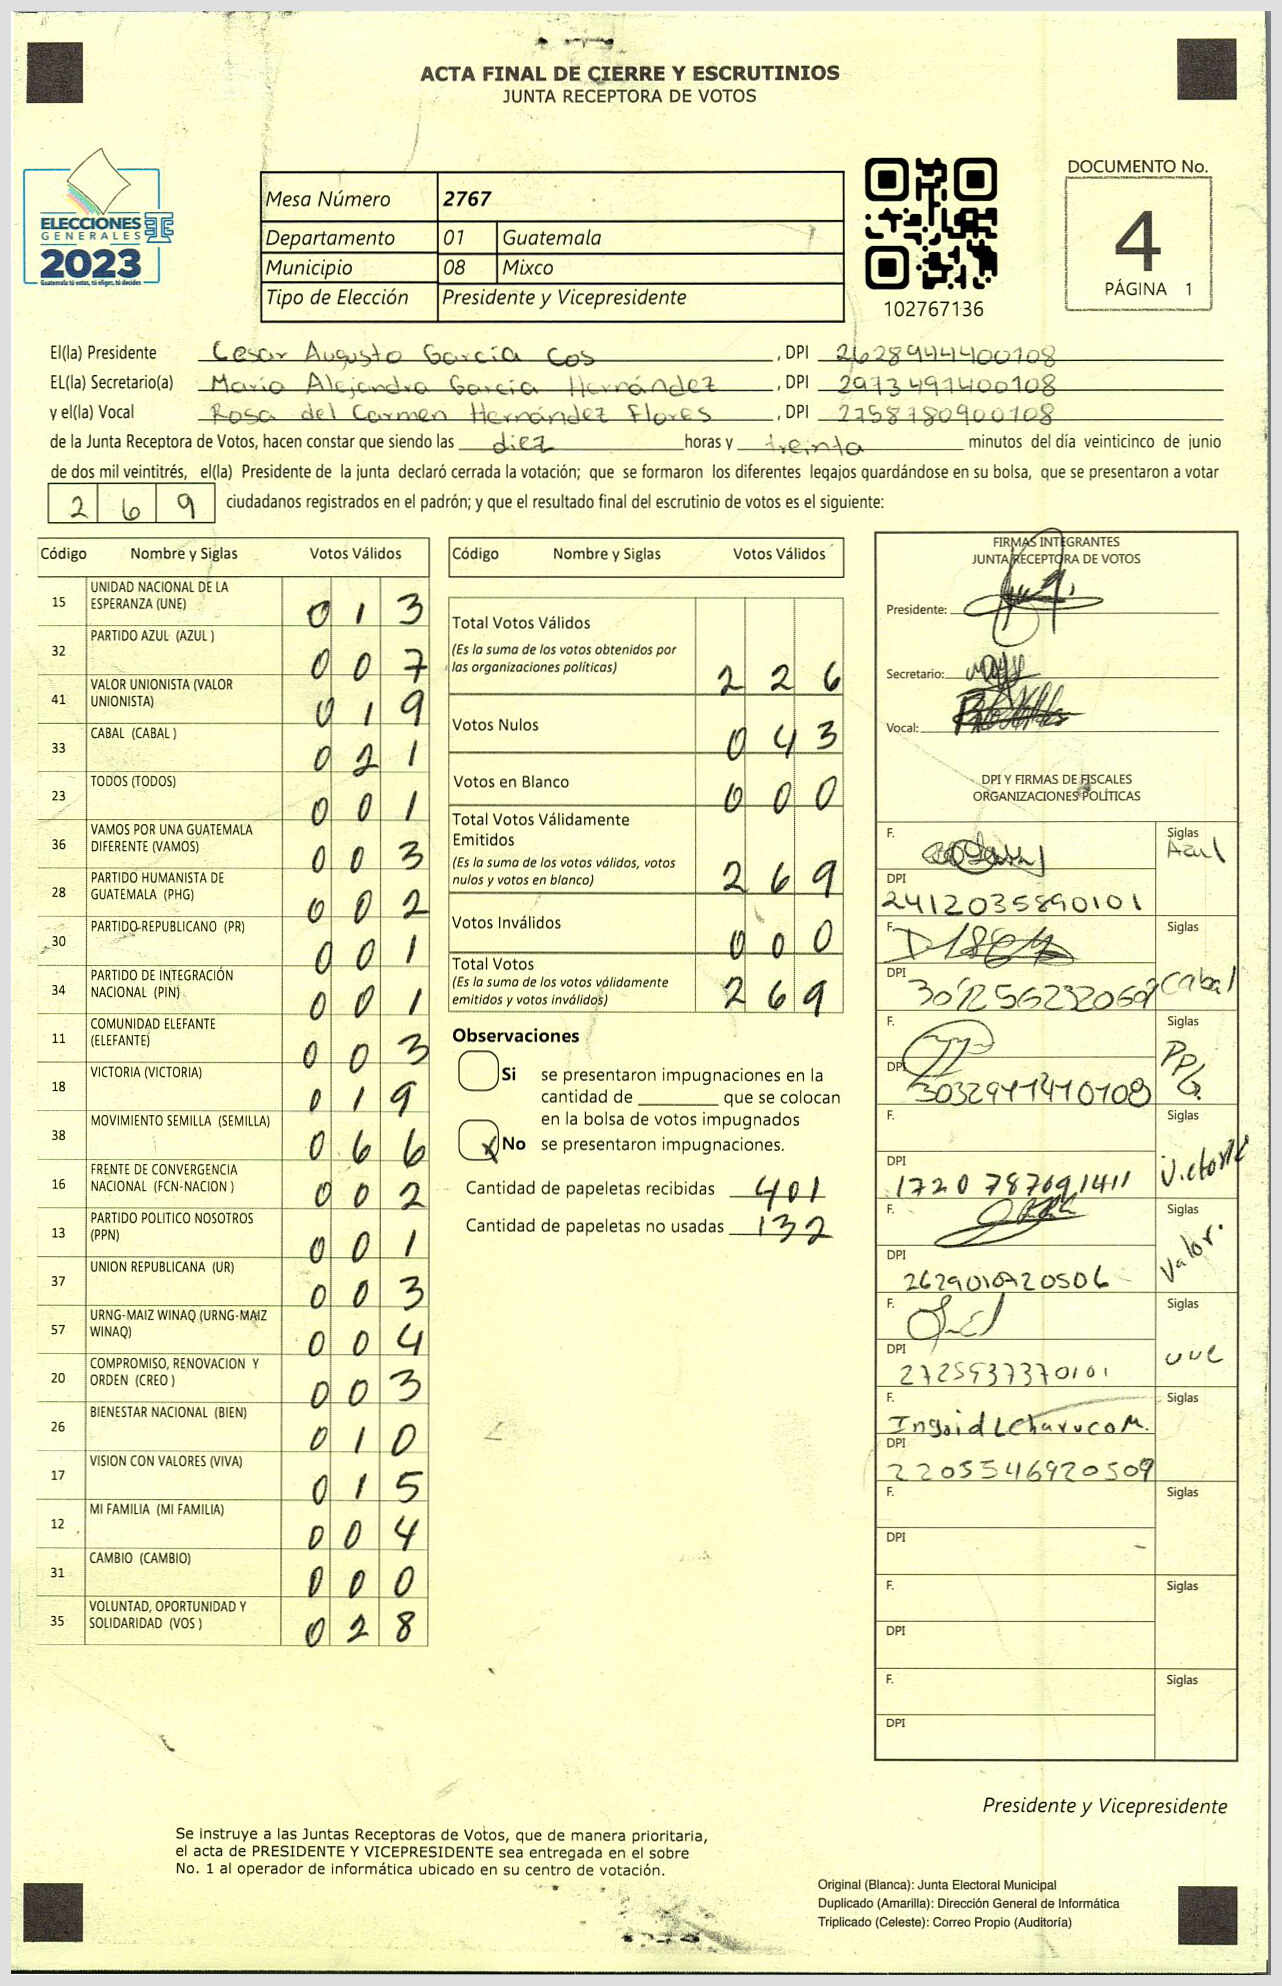 ACTA FINAL DE CIERRE Y ESCRUTINIOS
JUNTA RECEPTORA DE VOTOS
DOCUMENTO No.
4
PÁGINA 1
ELECCIONES
GENERALES
2023
Guatemala tú votas, tú eliges, tú decides
Mesa Número 2767
Departamento 01 Guatemala
Municipio 08 Mixco
Tipo de Elección Presidente y Vicepresidente
102767136
El(la) Presidente Cesar Augusto García Cos , DPI 2628944400108
EL(la) Secretario(a) María Alejandra García Hernández , DPI 2973497400108
y el(la) Vocal Rosa del Carmen Hernández Flores , DPI 2758780900108
de la Junta Receptora de Votos, hacen constar que siendo las diez horas y treinta minutos del día veinticinco de junio
de dos mil veintitrés, el(la) Presidente de la junta declaró cerrada la votación; que se formaron los diferentes legajos guardándose en su bolsa, que se presentaron a votar
2 6 9 ciudadanos registrados en el padrón; y que el resultado final del escrutinio de votos es el siguiente:
Código Nombre y Siglas Votos Válidos
15 UNIDAD NACIONAL DE LA
ESPERANZA (UNE) 0 1 3
32 PARTIDO AZUL (AZUL ) 0 0 7
41 VALOR UNIONISTA (VALOR
UNIONISTA) 0 1 9
33 CABAL (CABAL ) 0 2 1
23 TODOS (TODOS) 0 0 1
36 VAMOS POR UNA GUATEMALA
DIFERENTE (VAMOS) 0 0 3
28 PARTIDO HUMANISTA DE
GUATEMALA (PHG) 0 0 2
30 PARTIDO REPUBLICANO (PR) 0 0 1
34 PARTIDO DE INTEGRACIÓN
NACIONAL (PIN) 0 0 1
11 COMUNIDAD ELEFANTE
(ELEFANTE) 0 0 3
18 VICTORIA (VICTORIA) 0 1 9
38 MOVIMIENTO SEMILLA (SEMILLA) 0 6 6
16 FRENTE DE CONVERGENCIA
NACIONAL (FCN-NACION ) 0 0 2
13 PARTIDO POLITICO NOSOTROS
(PPN) 0 0 1
37 UNION REPUBLICANA (UR) 0 0 3
57 URNG-MAIZ WINAQ (URNG-MAIZ
WINAQ) 0 0 4
20 COMPROMISO, RENOVACION Y
ORDEN (CREO ) 0 0 3
26 BIENESTAR NACIONAL (BIEN) 0 1 0
17 VISION CON VALORES (VIVA) 0 1 5
12 MI FAMILIA (MI FAMILIA) 0 0 4
31 CAMBIO (CAMBIO) 0 0 0
35 VOLUNTAD, OPORTUNIDAD Y
SOLIDARIDAD (VOS ) 0 2 8
Código Nombre y Siglas Votos Válidos
Total Votos Válidos
(Es la suma de los votos obtenidos por
las organizaciones políticas) 2 2 6
Votos Nulos 0 4 3
Votos en Blanco 0 0 0
Total Votos Válidamente
Emitidos
(Es la suma de los votos válidos, votos
nulos y votos en blanco) 2 6 9
Votos Inválidos 0 0 0
Total Votos
(Es la suma de los votos válidamente
emitidos y votos inválidos) 2 6 9
Observaciones
Si se presentaron impugnaciones en la
cantidad de ________ que se colocan
en la bolsa de votos impugnados
x No se presentaron impugnaciones.
Cantidad de papeletas recibidas 401
Cantidad de papeletas no usadas 132
FIRMAS INTEGRANTES
JUNTA RECEPTORA DE VOTOS
Presidente:
Secretario:
Vocal:
DPI Y FIRMAS DE FISCALES
ORGANIZACIONES POLÍTICAS
F. Siglas
Azul
DPI
2412035890101
F. Siglas
DPI
Cabal
F. Siglas
DPI
F. Siglas
DPI
1720787691411 Victoria
F. Siglas
Valor
DPI
F. Siglas
une
DPI
2725937370101
F. Siglas
DPI
2205546920509
F. Siglas
DPI
F. Siglas
DPI
F. Siglas
DPI
Presidente y Vicepresidente
Se instruye a las Juntas Receptoras de Votos, que de manera prioritaria,
el acta de PRESIDENTE Y VICEPRESIDENTE sea entregada en el sobre
No. 1 al operador de informática ubicado en su centro de votación.
Original (Blanca): Junta Electoral Municipal
Duplicado (Amarilla): Dirección General de Informática
Triplicado (Celeste): Correo Propio (Auditoría)